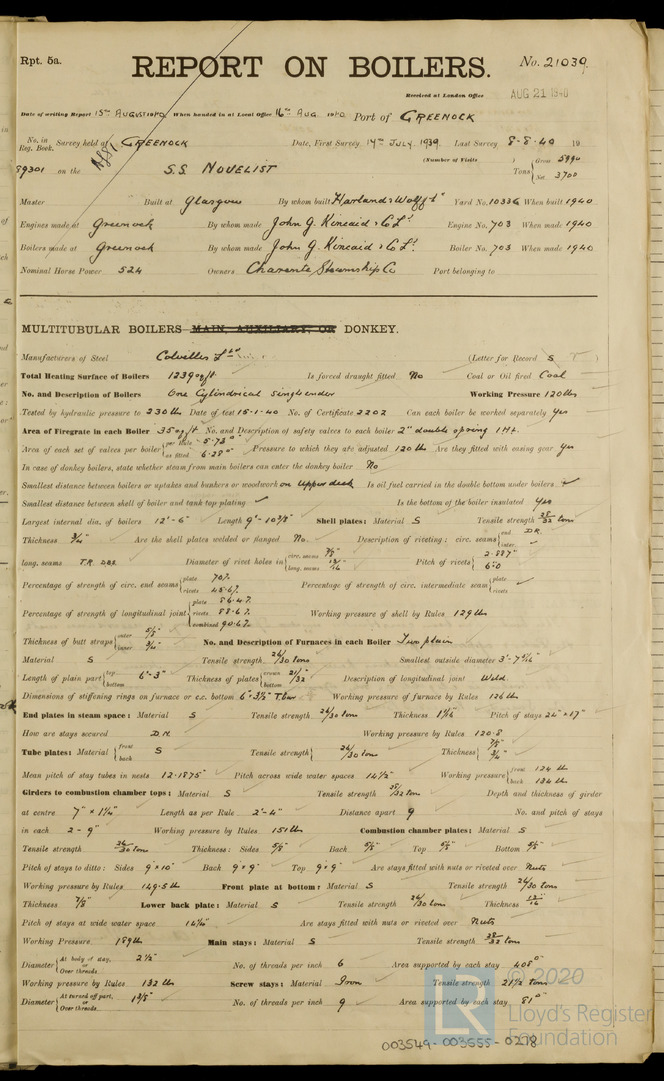 Rpt. 5a.
REPORT ON BOILERS.
No. 21039
Received at London Office AUG 21 1940
Date of writing Report 15TH AUGUST 1940 When handed in at Local Office 16TH AUG. 1940 Port of GREENOCK
No. in Reg. Book. Survey held at GREENOCK Date, First Survey 14TH JULY. 1939 Last Survey 8-8-40 19
(Number of Visits )
89301 on the S.S. NOVELIST Tons { Gross 5940
Net 3700
Master Built at Glasgow By whom built Harland & Wolff Ltd Yard No. 1033G When built 1940
Engines made at Greenock By whom made John G. Kincaid & Co Ld. Engine No. 703 When made 1940
Boilers made at Greenock By whom made John G. Kincaid & Co Ld. Boiler No. 703 When made 1940
Nominal Horse Power 524 Owners Charente Steamship Co Port belonging to
MULTITUBULAR BOILERS MAIN, AUXILIARY, OR DONKEY.
Manufacturers of Steel Colvilles Ltd (Letter for Record S )
Total Heating Surface of Boilers 1239 sq ft Is forced draught fitted No Coal or Oil fired Coal
No. and Description of Boilers One Cylindrical single ender Working Pressure 120 lbs
Tested by hydraulic pressure to 230 lbs Date of test 15-1-40 No. of Certificate 2202 Can each boiler be worked separately Yes
Area of Firegrate in each Boiler 35 sq ft No. and Description of safety valves to each boiler 2" double spring I Ht.
Area of each set of valves per boiler { per Rule 5.73 □"
as fitted 6.28 □" Pressure to which they are adjusted 120 lb Are they fitted with easing gear Yes
In case of donkey boilers, state whether steam from main boilers can enter the donkey boiler No
Smallest distance between boilers or uptakes and bunkers or woodwork on upper deck Is oil fuel carried in the double bottom under boilers ✓
Smallest distance between shell of boiler and tank top plating ✓ Is the bottom of the boiler insulated Yes
Largest internal dia. of boilers 12'-6" Length 9'-10 3/8" Shell plates: Material S Tensile strength 28/32 tons
Thickness 3/4" Are the shell plates welded or flanged No. Description of riveting: circ. seams { end D.R.
inter. ✓
long. seams T.R. DBS Diameter of rivet holes in { circ. seams 7/8"
long. seams 13/16 Pitch of rivets { 2.887"
6.0
Percentage of strength of circ. end seams { plate 70%
rivets 45.6% Percentage of strength of circ. intermediate seam { plate
rivets ✓
Percentage of strength of longitudinal joint { plate 86.4%
rivets 88.6%
combined 90.6% Working pressure of shell by Rules 129 lb
Thickness of butt straps { outer 5/8"
inner 3/4" No. and Description of Furnaces in each Boiler Two plain
Material S Tensile strength 26/30 tons Smallest outside diameter 3'-7 5/16"
Length of plain part { top 6'-3"
bottom Thickness of plates { crown 21/32"
bottom Description of longitudinal joint Weld.
Dimensions of stiffening rings on furnace or c.c. bottom Working pressure of furnace by Rules 126 lb
End plates in steam space: Material S Tensile strength 26/30 tons Thickness 1 1/16 Pitch of stays 24" x 17"
How are stays secured D.N. Working pressure by Rules 120.8
Tube plates: Material { front S
back Tensile strength { 26/30 tons Thickness { 7/8"
3/4"
Mean pitch of stay tubes in nests 12.1875" Pitch across wide water spaces 14 1/2" Working pressure { front 124 lb
back 134 lb
Girders to combustion chamber tops: Material S Tensile strength 28/32 tons Depth and thickness of girder
at centre 7" x 1 1/4" Length as per Rule 2'-4" Distance apart 9 No. and pitch of stays
in each 2 - 9" Working pressure by Rules 151 lb Combustion chamber plates: Material S
Tensile strength 26/30 tons Thickness: Sides 5/8" Back 5/8" Top 5/8" Bottom 5/8"
Pitch of stays to ditto: Sides 9" x 10" Back 9" x 9" Top 9" x 9" Are stays fitted with nuts or riveted over Nuts
Working pressure by Rules 149.5 lb Front plate at bottom: Material S Tensile strength 26/30 tons
Thickness 7/8" Lower back plate: Material S Tensile strength 26/30 tons Thickness 13/16"
Pitch of stays at wide water space 14 1/4" Are stays fitted with nuts or riveted over Nuts
Working Pressure 189 lb Main stays: Material S Tensile strength 28/32 tons
Diameter { At body of stay, 2 1/2"
or
Over threads No. of threads per inch 6 Area supported by each stay 408 □"
Working pressure by Rules 132 lb Screw stays: Material Iron Tensile strength 21 1/2 tons
Diameter { At turned off part, 1 5/8"
or
Over threads No. of threads per inch 9 Area supported by each stay 81 □"
LR © 2020
Lloyd's Register
Foundation
003549-003555-0278